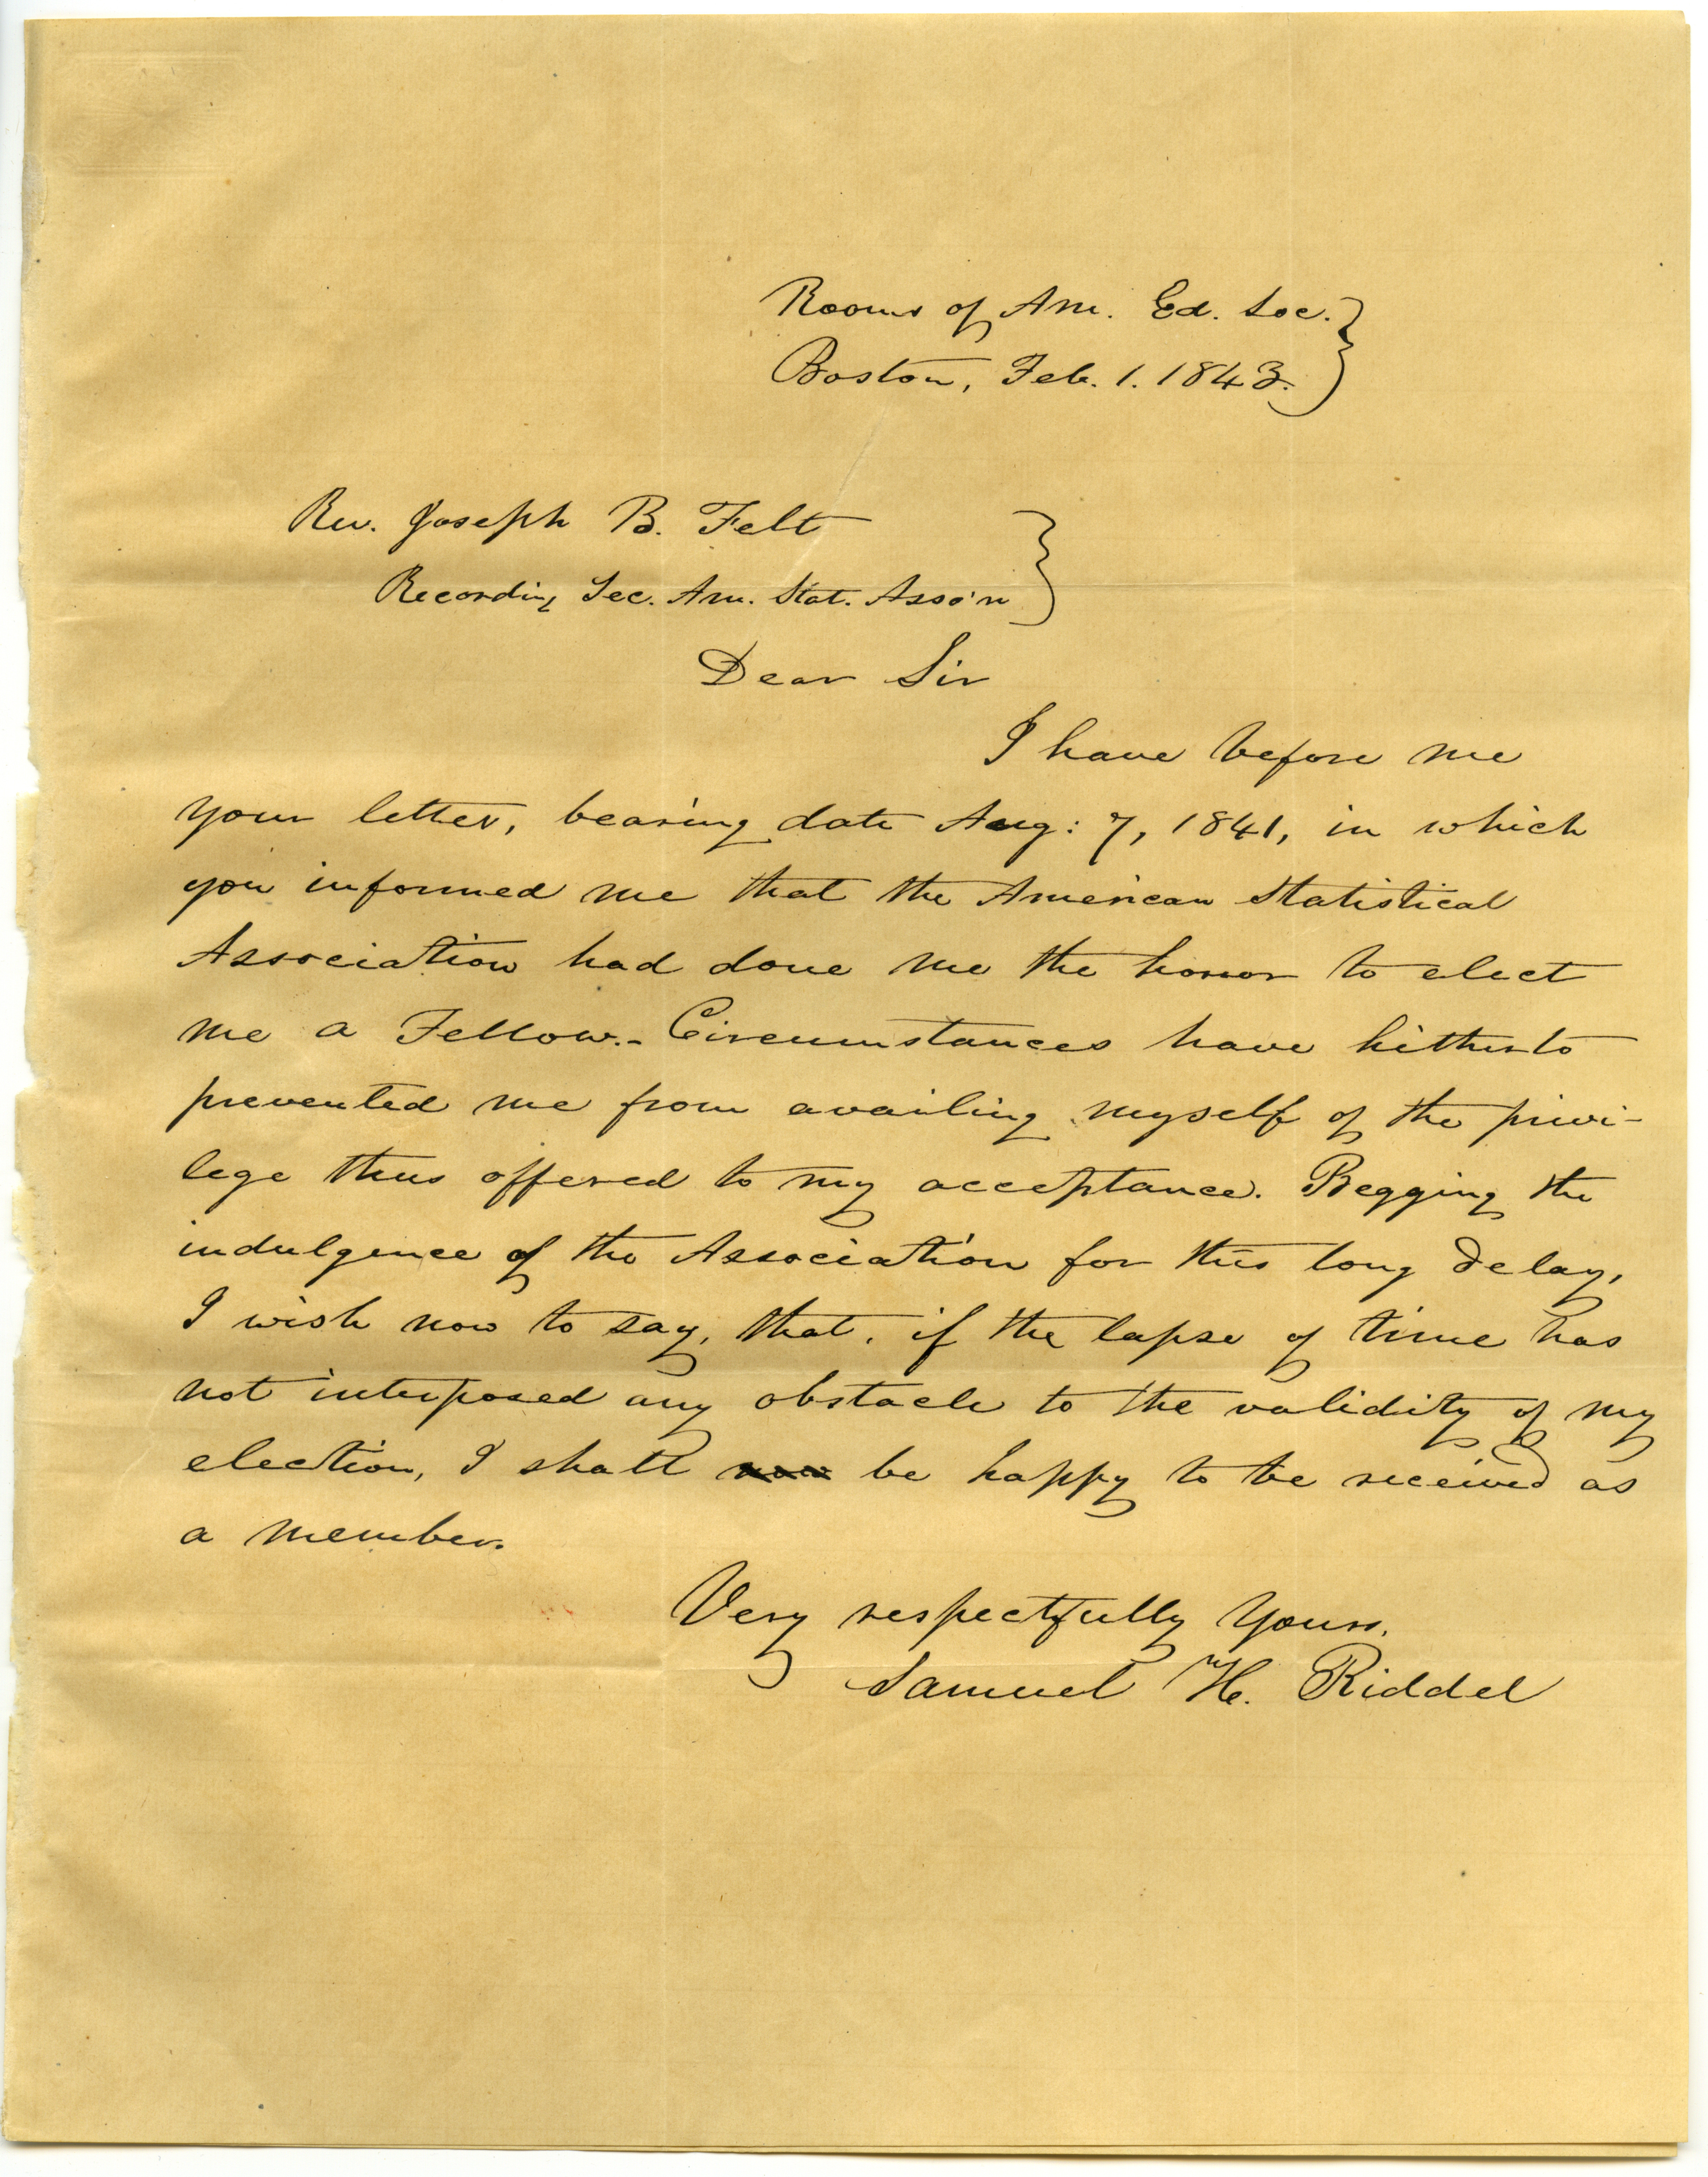 Rooms of Am. Ed. Soc.
Boston, Feb. 1. 1843.
Rev. Joseph B. Felt
Recording Sec. Am. Stat. Asso'n
Dear Sir
I have before me
your letter, bearing date Aug: 7, 1841, in which
you informed me that the American Statistical
Association had done me the honor to elect
me a Fellow.- Circumstances have hitherto
prevented me from availing myself of the privi-
lege thus offered to my acceptance. Begging the
indulgence of the Association for this long delay,
I wish now to say, that, if the lapse of time has
not interposed any obstacle to the validity of my
election, I shall be happy to be received as
a member.
Very respectfully Yours.
Samuel H. Riddel